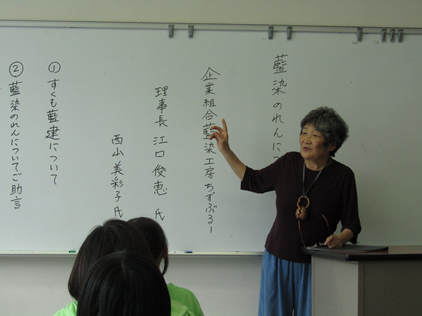 藍染のれんに
企業組合藍染工房ちずぶるー
理事長 江口俊恵 氏
西山美彩子 氏
①すくも藍建について
②藍染のれんについてご助言